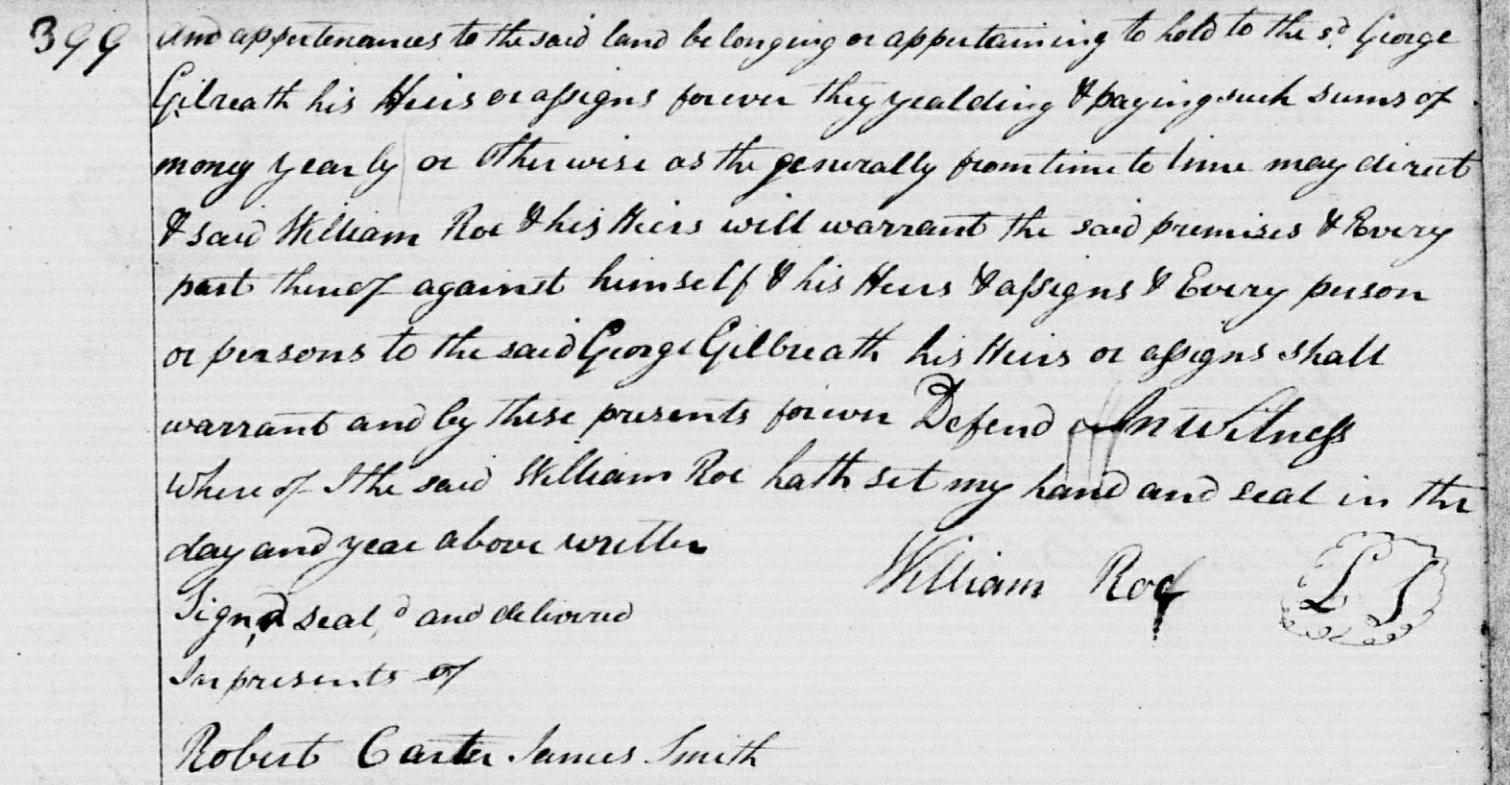 399
And appertenances to the said land belonging or appertaining to hold to the sd. George
Gilreath his Heirs or assigns forever they yealding & paying such sums of
money yearly or Otherwise as the generally from time to time may direct
& said William Roe & his Heirs will warrant the said premises & Every
part thereof against himself & his Heirs & assigns & Every person
or persons to the said George Gilbreath his Heirs or assigns shall
warrant and by these presents forever Defend In Witness
where of I the said William Roe hath set my hand and seal in the
day and year above written
William Roe L S
Sign,d seal,d and delivered
In presents of
Robert Carter James Smith